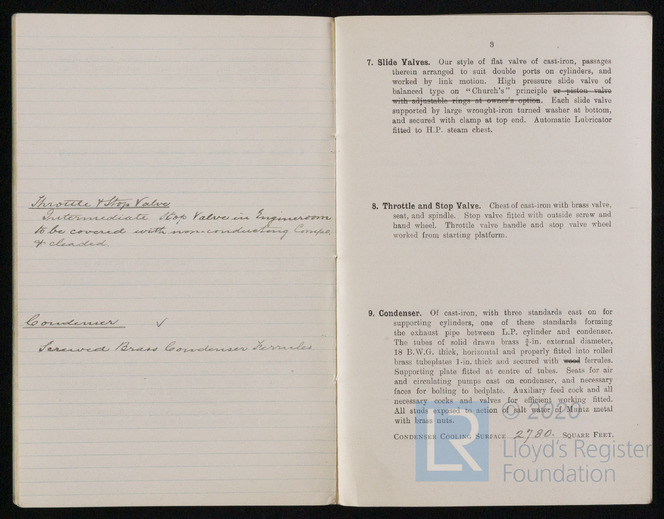 Throttle & Stop Valve
Intermediate Stop Valve in Engineroom
to be covered with non-conducting Compo
& cleaded.
Condenser ✓
Screwed Brass Condenser Ferrules
3
7. Slide Valves. Our style of flat valve of cast-iron, passages
therein arranged to suit double ports on cylinders, and
worked by link motion. High pressure slide valve of
balanced type on "Church's" principle or piston valve
with adjustable rings at owner's option. Each slide valve
supported by large wrought-iron turned washer at bottom,
and secured with clamp at top end. Automatic Lubricator
fitted to H.P. steam chest.
8. Throttle and Stop Valve. Chest of cast-iron with brass valve,
seat, and spindle. Stop valve fitted with outside screw and
hand wheel. Throttle valve handle and stop valve wheel
worked from starting platform.
9. Condenser. Of cast-iron, with three standards cast on for
supporting cylinders, one of these standards forming
the exhaust pipe between L.P. cylinder and condenser.
The tubes of solid drawn brass ¾-in. external diameter,
18 B.W.G. thick, horizontal and properly fitted into rolled
brass tubeplates 1-in. thick and secured with wood ferrules.
Supporting plate fitted at centre of tubes. Seats for air
and circulating pumps cast on condenser, and necessary
faces for bolting to bedplate. Auxiliary feed cock and all
necessary cocks and valves for efficient working fitted.
All studs exposed to action of salt water of Muntz metal
with brass nuts.
CONDENSER COOLING SURFACE 2780. SQUARE FEET.
© 2020
LR
Lloyd's Register
Foundation